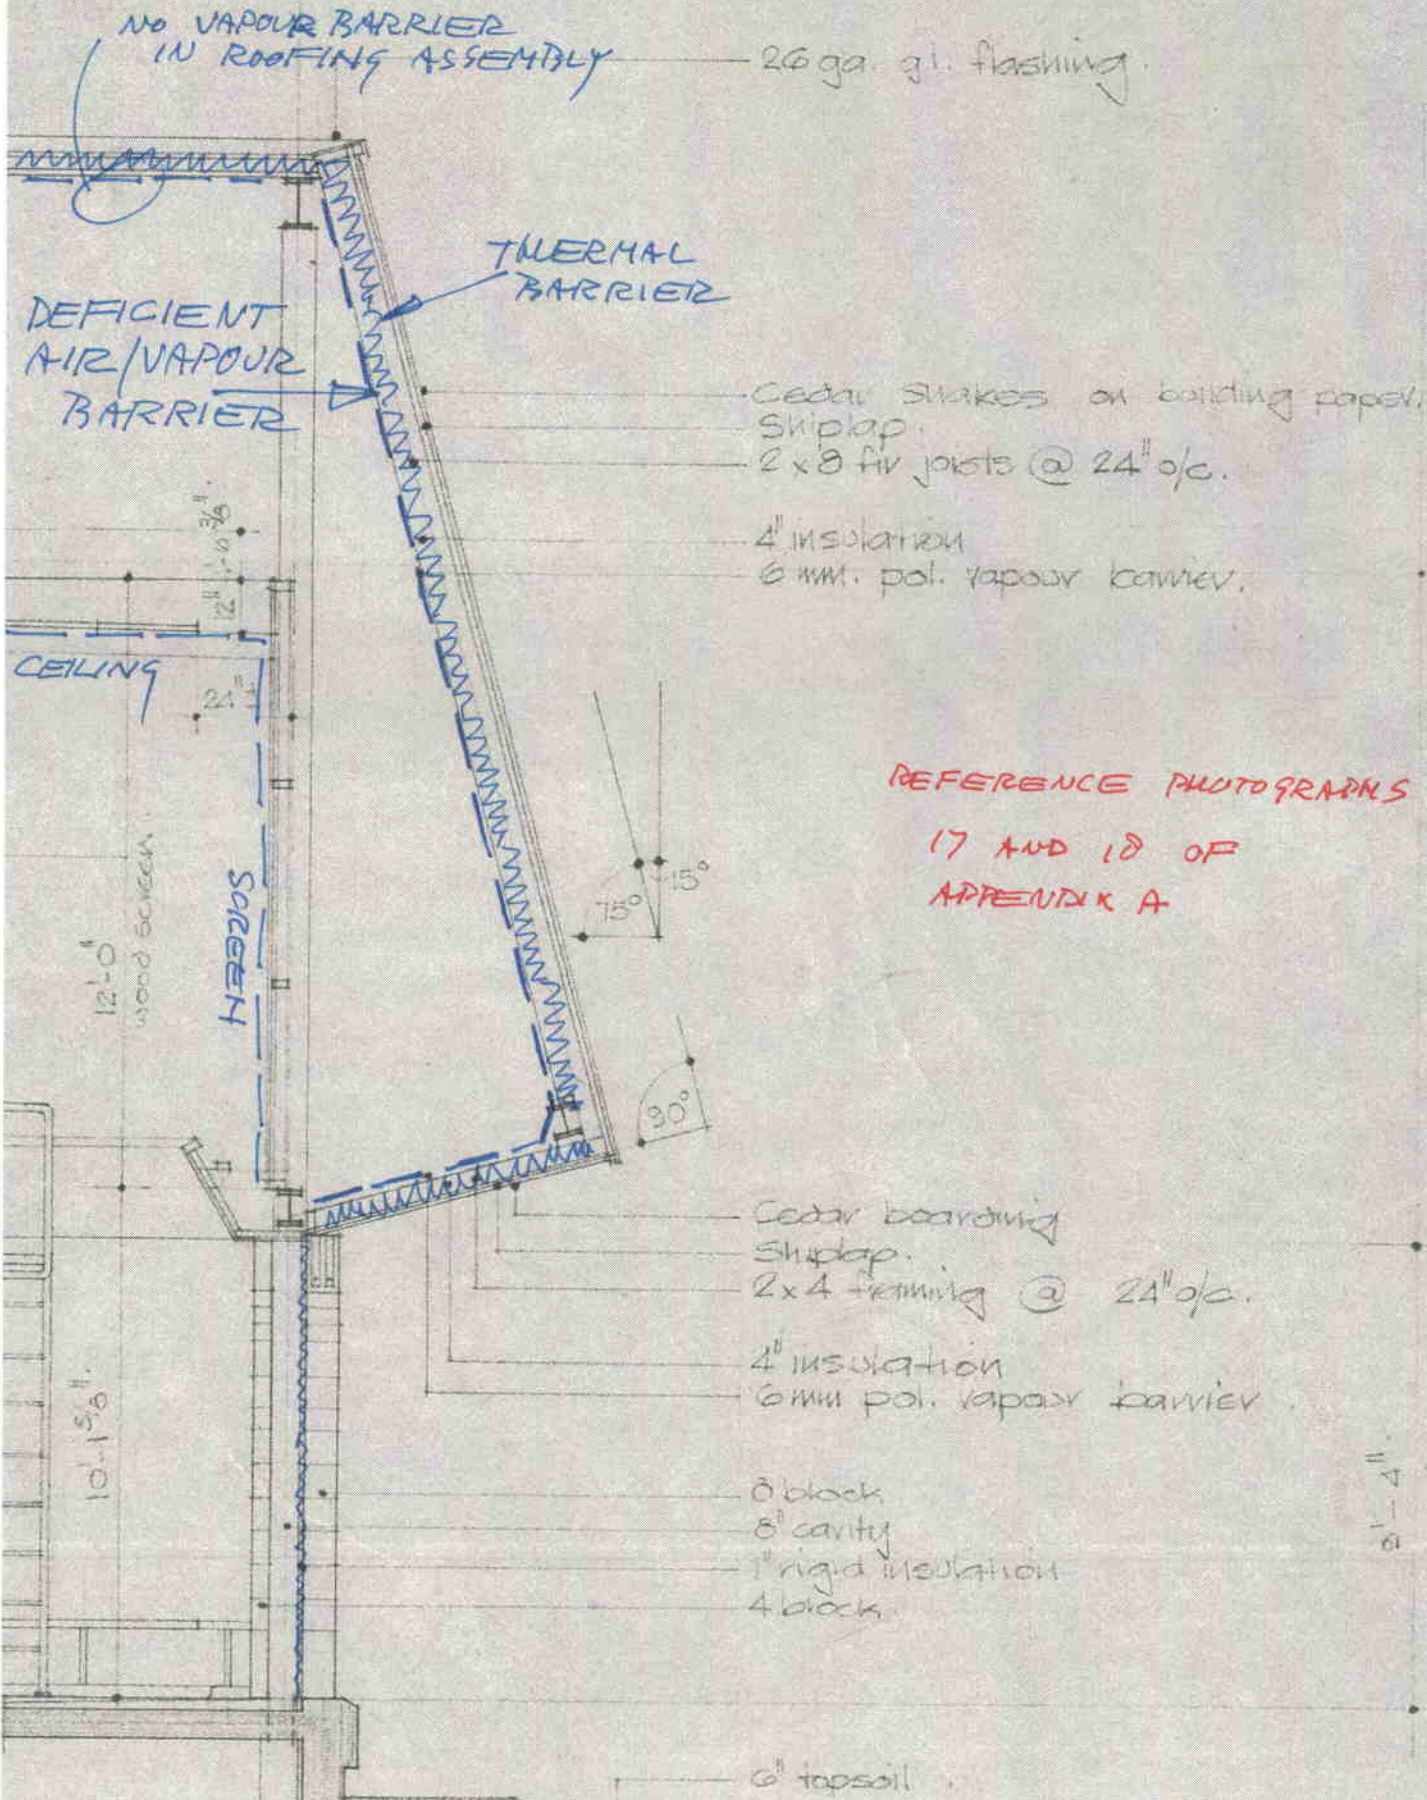 NO VAPOUR BARRIER
IN ROOFING ASSEMBLY
26 ga. g.i. flashing.
THERMAL
BARRIER
DEFICIENT
AIR/VAPOUR
BARRIER
Cedar shakes on building paper.
Shiplap.
2 x 8 fir joists @ 24" o/c.
4" insulation
6 mm. pol. vapour barrier.
12"
CEILING
24"
REFERENCE PHOTOGRAPHS
17 AND 18 OF
APPENDIX A
15°
75°
SCREEN
12'-0"
wood screen.
90°
Cedar boarding
Shiplap.
2 x 4 framing @ 24" o/c.
4" insulation
6 mm pol. vapour barrier.
10'-1 5/8".
8 block
8" cavity
1" rigid insulation
4 block
6" topsoil.